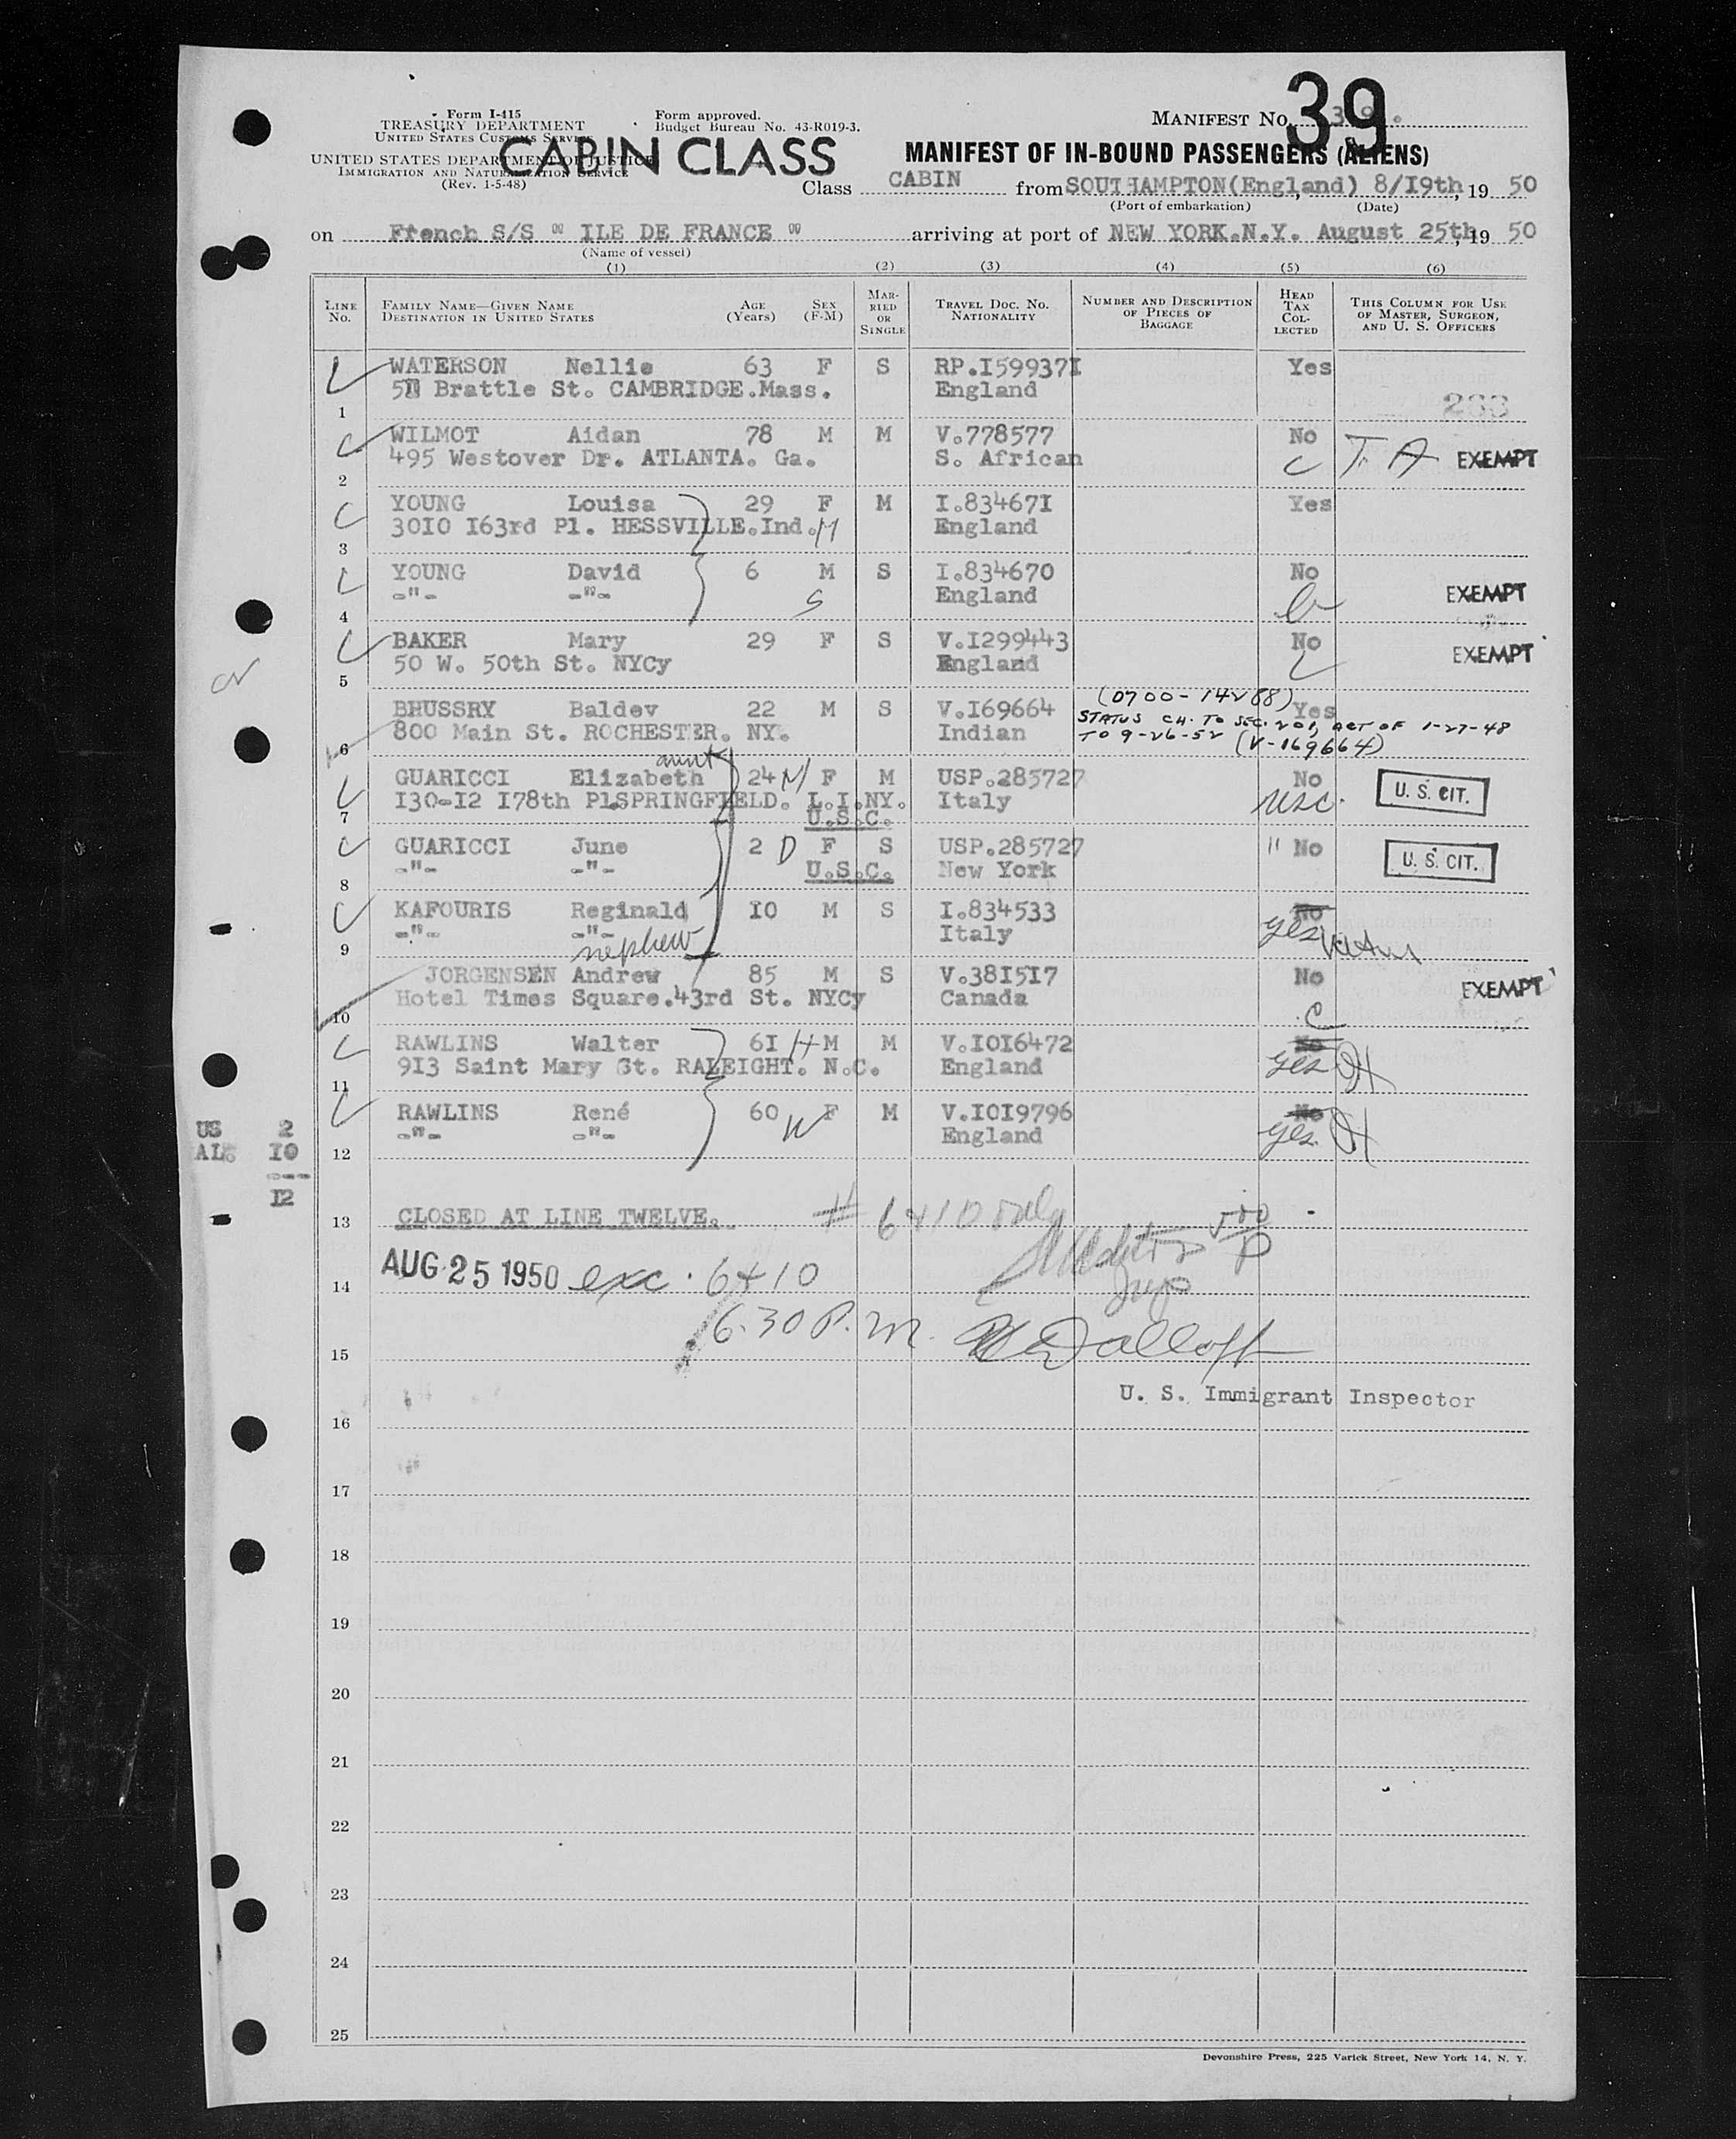 39
Form I-415
TREASURY DEPARTMENT
UNITED STATES CUSTOMS SERVICE
UNITED STATES DEPARTMENT OF JUSTICE
IMMIGRATION AND NATURALIZATION SERVICE
(Rev. 1-5-48)
Form approved.
Budget Bureau No. 43-R019-3.
CABIN CLASS
MANIFEST No. 39.
MANIFEST OF IN-BOUND PASSENGERS (ALIENS)
Class CABIN from SOUTHAMPTON(England) 8/I9th, 19 50
(Port of embarkation) (Date)
on French S/S " ILE DE FRANCE " arriving at port of NEW YORK.N.Y. August 25th, 19 50
(Name of vessel)
(1) (2) (3) (4) (5) (6)
LINE No.
FAMILY NAME—GIVEN NAME
DESTINATION IN UNITED STATES
AGE (Years)
SEX (F-M)
MARRIED OR SINGLE
TRAVEL DOC. NO.
NATIONALITY
NUMBER AND DESCRIPTION OF PIECES OF BAGGAGE
HEAD TAX COLLECTED
THIS COLUMN FOR USE OF MASTER, SURGEON, AND U. S. OFFICERS
WATERSON Nellie 63 F S RP.I59937I Yes
Brattle St. CAMBRIDGE.Mass. England
1
WILMOT Aidan 78 M M V.778577 No
495 Westover Dr. ATLANTA. Ga. S. African C T. A EXEMPT
2
YOUNG Louisa 29 F M I.83467I Yes
30I0 I63rd Pl. HESSVILLE.Ind. M England
3
YOUNG David 6 M S I.834670 No
-"- -"- S England EXEMPT
4
BAKER Mary 29 F S V.I299443 No
50 W. 50th St. NYCy England EXEMPT
5
(0700-14288)
BHUSSRY Baldev 22 M S V.I69664 Yes
STATUS CH. TO SEC. 201, ACT OF 1-27-48
800 Main St. ROCHESTER. NY. Indian TO 9-26-52 (V-169664)
6
aunt
GUARICCI Elizabeth 24 M F M USP.285727 No
I30-I2 I78th Pl.SPRINGFIELD. L.I.NY. Italy usc. U. S. CIT.
7 U.S.C.
GUARICCI June 2 D F S USP.285727 " No
-"- -"- U.S.C. New York U. S. CIT.
8
KAFOURIS Reginald I0 M S I.834533 No
-"- -"- Italy yes
9 nephew
JORGENSEN Andrew 85 M S V.38I5I7 No
Hotel Times Square.43rd St. NYCy Canada EXEMPT
10 C
RAWLINS Walter 6I H M M V.I0I6472 No
9I3 Saint Mary St. RALEIGHT. N.C. England yes
11
RAWLINS René 60 W F M V.I0I9796 No
-"- -"- England yes
12
US 2
AL. I0
---
I2
13 CLOSED AT LINE TWELVE. # 6 + 10 only
14 AUG 25 1950 exc. 6 + 10
6.30 P.M.
15
U. S. Immigrant Inspector
16
17
18
19
20
21
22
23
24
25
Devonshire Press, 225 Varick Street, New York 14, N. Y.